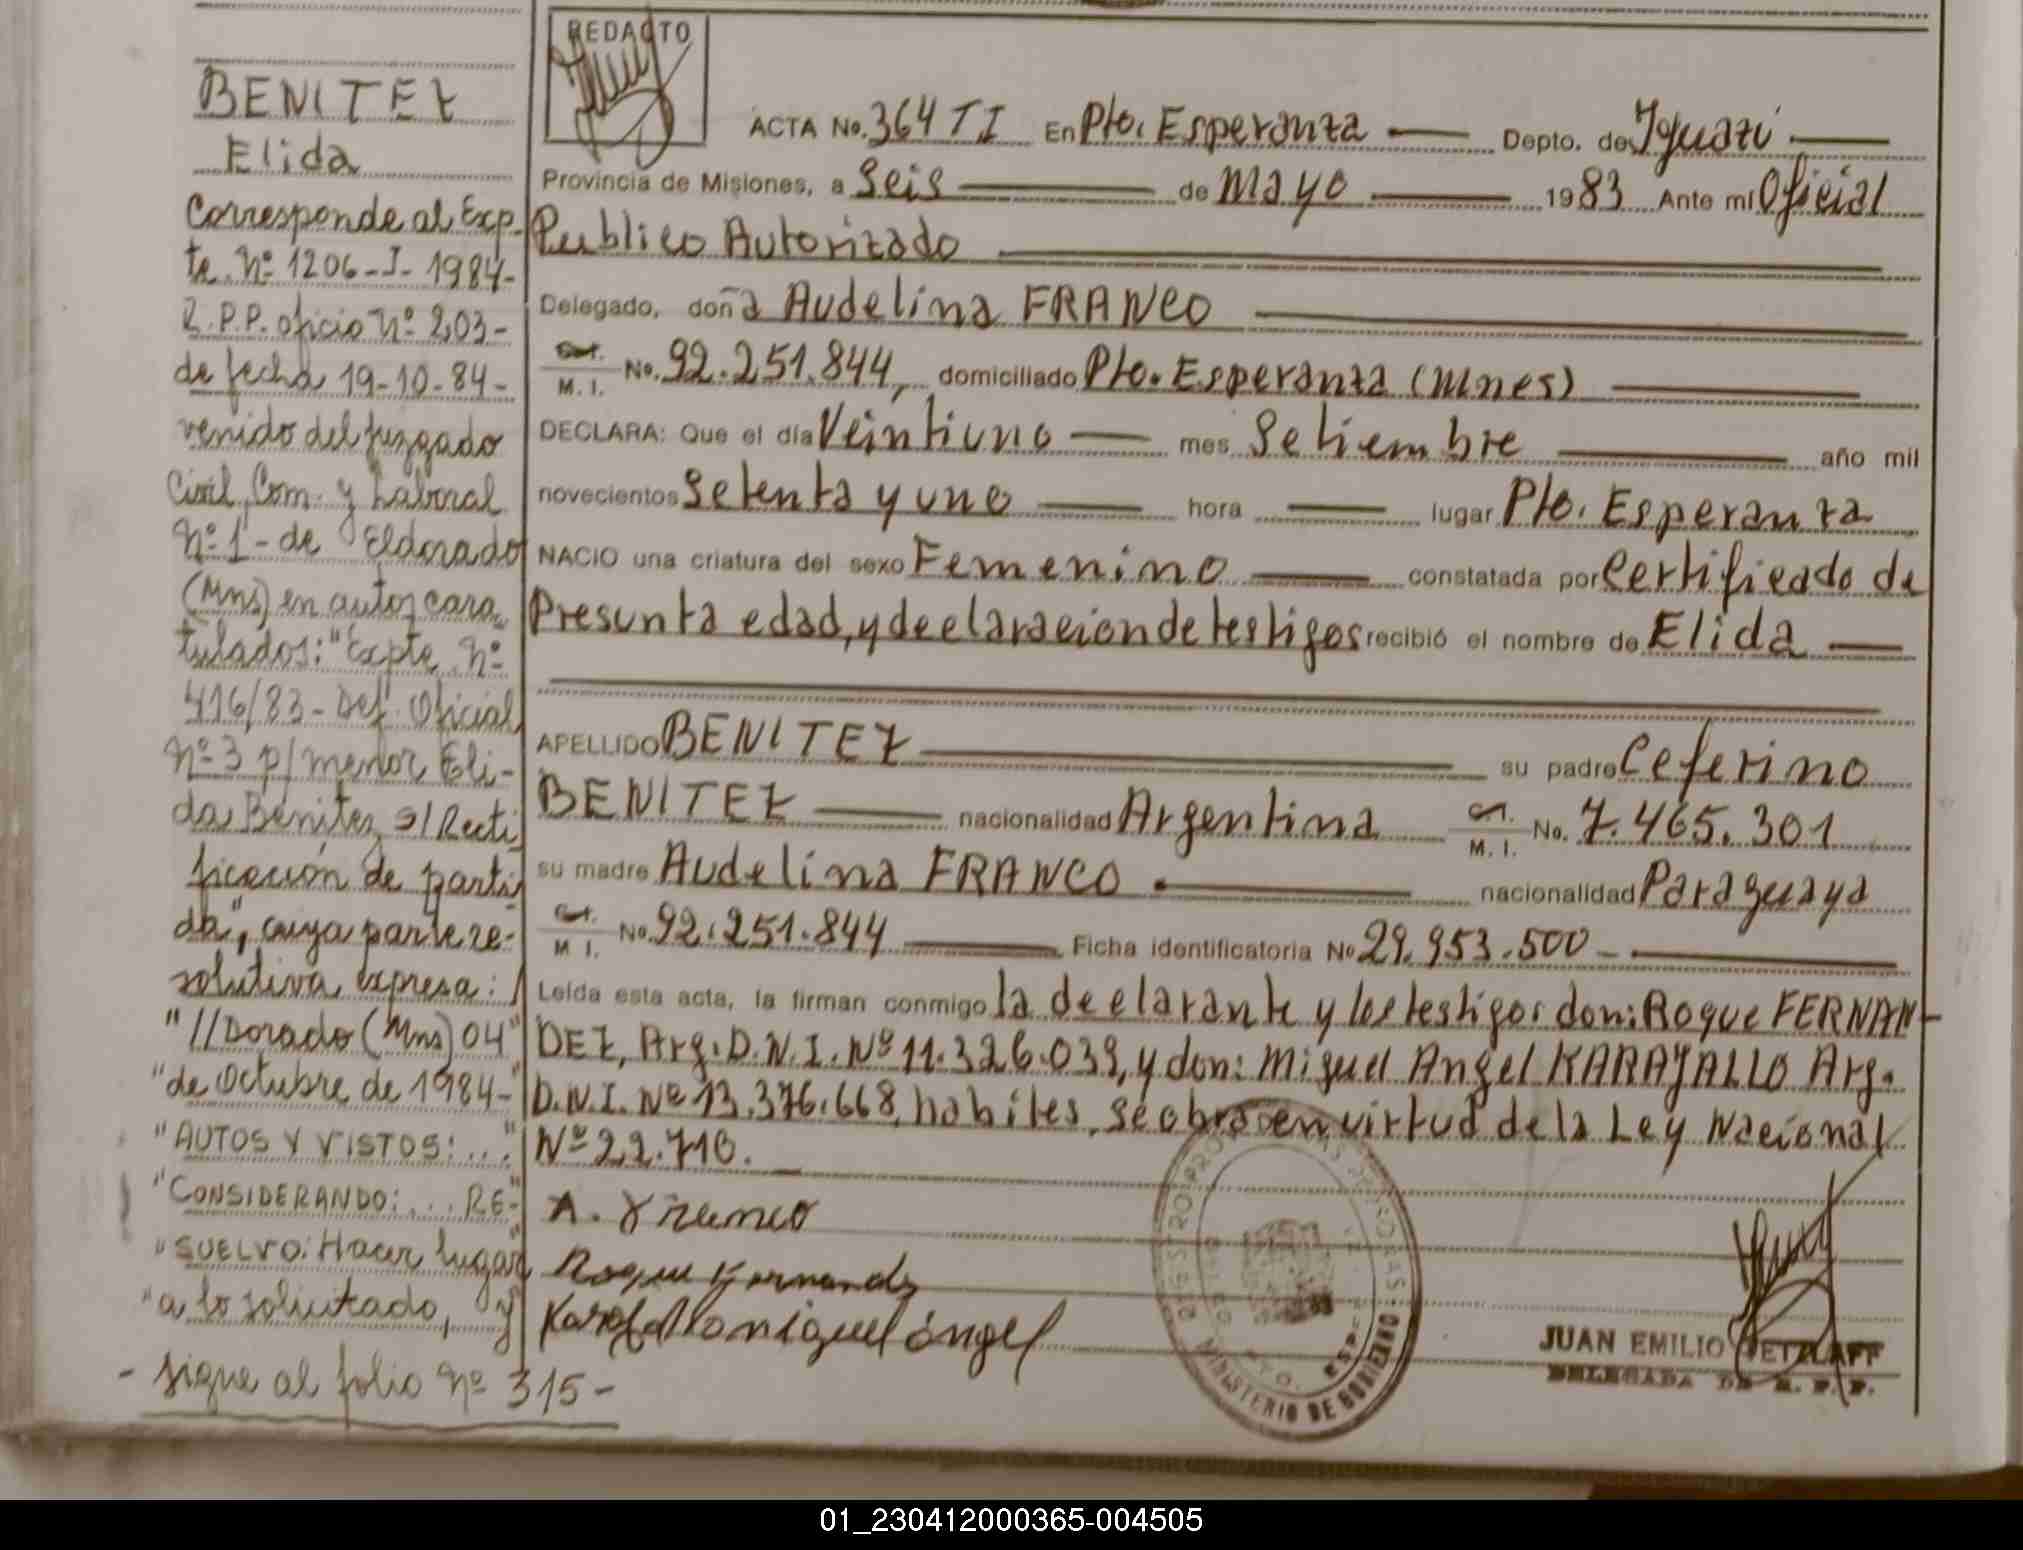 BENITEZ
Elida
Corresponde al Exp-
te. Nº 1206-I-1984-
R.P.P. oficio Nº 203-
de fecha 19-10-84-
venido del Juzgado
Civil, Com. y Laboral
Nº 1 - de Eldorado
(Mns) en autos cara
tulados: "Expte. Nº
416/83 - Def. Oficial
Nº 3 p/ menor Eli-
da Benitez s/ Recti
ficación de parti
da", cuya parte re-
solutiva expresa: /
"//Dorado (Mns) 04"
"de Octubre de 1984-"
"AUTOS Y VISTOS:..."
"CONSIDERANDO:... RE-"
"SUELVO: Hacer lugar
"a lo solicitado, y
- sigue al folio Nº 315 -
REDACTO
ACTA No. 364 TI En Pto. Esperanza Depto. de Iguazú
Provincia de Misiones, a Seis de Mayo 1983 Ante mí Oficial
Publico Autorizado
Delegado, doña Audelina FRANCO
M. I. No. 92.251.844, domiciliado Pto. Esperanza (Mnes)
DECLARA: Que el día Veintiuno mes Setiembre año mil
novecientos Setenta y uno hora lugar Pto. Esperanza
NACIO una criatura del sexo Femenino constatada por Certificado de
Presunta edad, y declaracion de testigos recibió el nombre de Elida
APELLIDO BENITEZ su padre Ceferino
BENITEZ nacionalidad Argentina M. I. No. 7.465.301
su madre Audelina FRANCO nacionalidad Paraguaya
M. I. No. 92.251.844 Ficha identificatoria No 29.953.500
Leída esta acta, la firman conmigo la declarante y los testigos don: Roque FERNAN-
DEZ, Arg. D.N.I. Nº 11.326.039, y don: Miguel Angel KARAJALLO Arg.
D.N.I. Nº 13.376.668, habiles, se obra en virtud de la Ley Nacional
Nº 22.710.
A. Franco
Roque Fernandez
Miguel angel
MINISTERIO DE GOBIERNO
JUAN EMILIO
DELEGADA DE R. P. P.
01_230412000365-004505